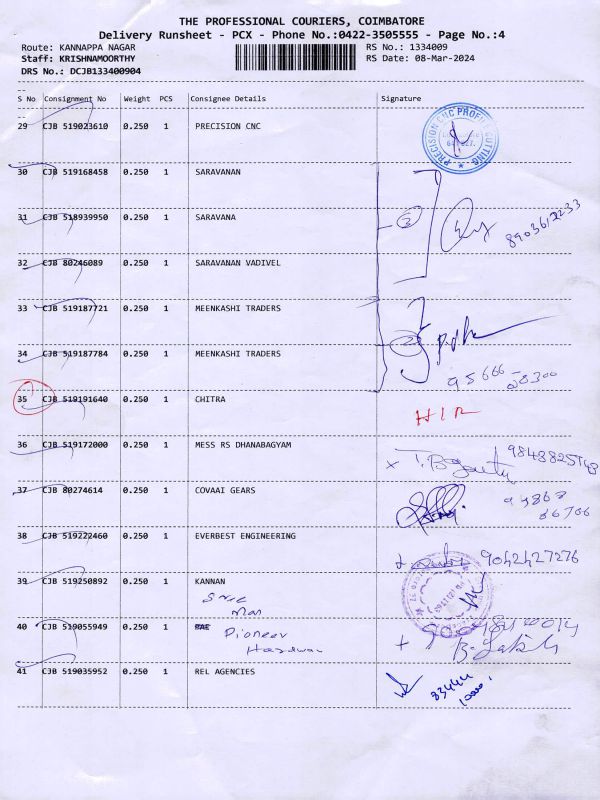 THE PROFESSIONAL COURIERS, COIMBATORE
Delivery Runsheet - PCX - Phone No.:0422-3505555 - Page No.:4
Route: KANNAPPA NAGAR RS No.: 1334009
Staff: KRISHNAMOORTHY RS Date: 08-Mar-2024
DRS No.: DCJB133400904
S No Consignment No Weight PCS Consignee Details Signature
29 CJB 519023610 0.250 1 PRECISION CNC
PRECISION CNC PROFILE CUTTING
30 CJB 519168458 0.250 1 SARAVANAN
31 CJB 518939950 0.250 1 SARAVANA
3 8903612233
32 CJB 80246089 0.250 1 SARAVANAN VADIVEL
33 CJB 519187721 0.250 1 MEENKASHI TRADERS
34 CJB 519187784 0.250 1 MEENKASHI TRADERS
2
95666-
28300
35 CJB 519191640 0.250 1 CHITRA
36 CJB 519172000 0.250 1 MESS RS DHANABAGYAM
37 CJB 80274614 0.250 1 COVAAI GEARS
38 CJB 519222460 0.250 1 EVERBEST ENGINEERING
9042427276
39 CJB 519250892 0.250 1 KANNAN
40 CJB 519055949 0.250 1
Pioneer
41 CJB 519035952 0.250 1 REL AGENCIES
83444